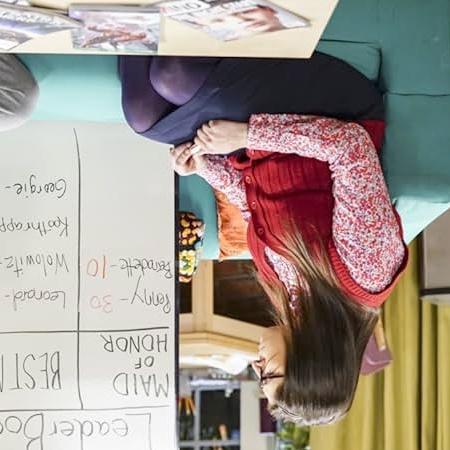 Leader Boa
MAID OF HONOR
BEST M
Penny - 30
Bernadette - 10
Leonard -
Wolowitz -
Koothrapp
Georgie -